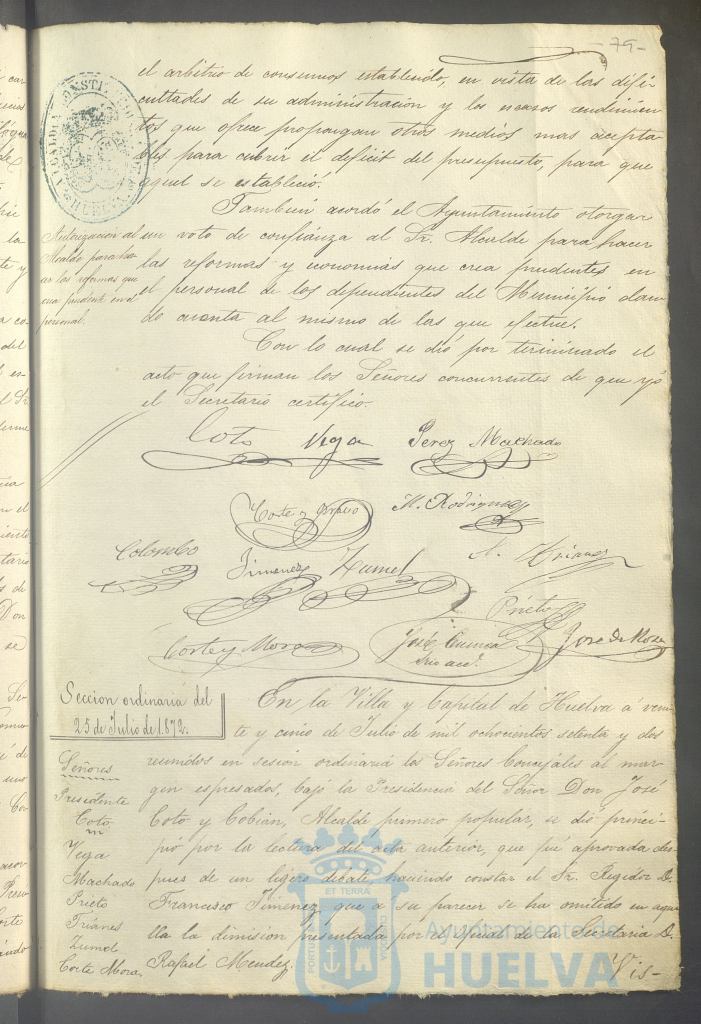 - 79 -
el arbitrio de consumos establecido, en vista de las difi-
cultades de su administracion y los escasos rendimien-
tos que ofrece propongan otros medios mas acepta-
bles para cubrir el deficit del presupuesto, para que
aquel se estableció.
Tambien acordó el Ayuntamiento otorgar
un voto de confianza al Sr. Alcalde para hacer
las reformas y economias que crea prudentes en
el personal de los dependientes del Municipio dan-
do cuenta al mismo de las que efectue.
Autorizacion al
Alcalde para ha-
cer las reformas que
crea prudent. en el
personal.
Con lo cual se dió por terminado el
acto que firman los Señores concurrentes de que yó
el Secretario certifico.
Coto Vega Perez Machado
Corte y Bravo M. Rodriguez
Colombo Jimenez Zumel A. Trianes
Prieto
Corte y Mora José Cuenca José de Mora
Srio acc.l
Seccion ordinaria del
25 de Julio de 1.872.
En la Villa y Capital de Huelva á vein-
te y cinco de Julio de mil ochocientos setenta y dos
reunidos en sesion ordinaria los Señores Concejales al mar-
gen espresados, bajo la Presidencia del Señor Don José
Coto y Cobian, Alcalde primero popular, se dió princi-
pió por la lectura del acta anterior, que fué aprovada des-
pues de un ligero debate, haciendo constar el Sr. Regidor D.
Francisco Jimenez que a su parecer se ha omitido en aque-
lla la dimision presentada por el oficial de la Secretaria D.
Rafael Mendez.
Vis-
Señores
Presidente
Coto
Vega
Machado
Prieto
Trianes
Zumel
Corte Mora
ET TERRÆ
Ayuntamiento de
HUELVA